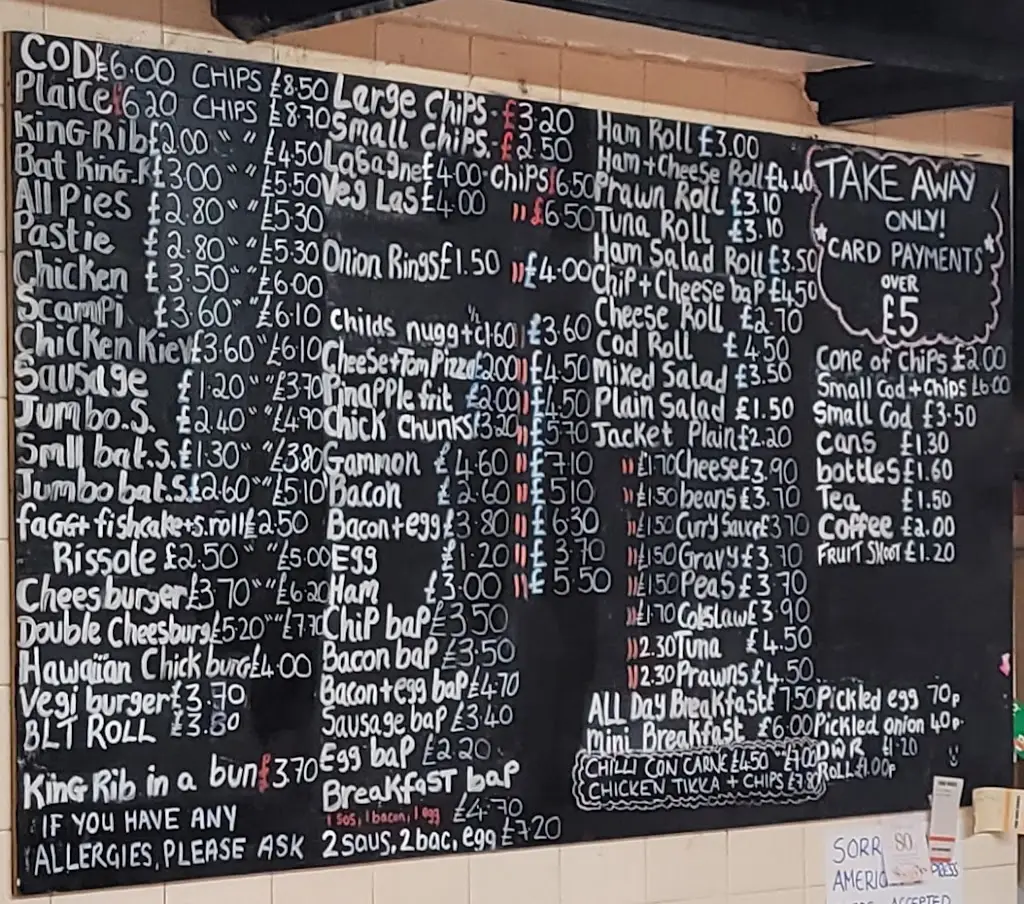 COD £6.00 CHIPS £8.50
Plaice £6.20 CHIPS £8.70
King Rib £2.00 " " £4.50
Bat King.R £3.00 " " £5.50
All Pies £2.80 " " £5.30
Pastie £2.80 " " £5.30
Chicken £3.50 " " £6.00
Scampi £3.60 " " £6.10
Chicken Kiev £3.60 " " £6.10
Sausage £1.20 " " £3.70
Jumbo.S. £2.40 " " £4.90
Smll bat.S. £1.30 " " £3.80
Jumbo bat.S. £2.60 " " £5.10
faggt fishcake+s.roll £2.50
Rissole £2.50 " " £5.00
Cheesburger £3.70 " " £6.20
Double Cheesburg £5.20 " " £7.70
Hawaiian Chick burg £4.00
Vegi burger £3.70
BLT ROLL
King Rib in a bun £3.70
IF YOU HAVE ANY
ALLERGIES, PLEASE ASK
Large Chips. £3.20
Small Chips. £2.50
Lasagne £4.00 - Chips £6.50
Veg Las £4.00 " £6.50
Onion Rings £1.50 " £4.00
Childs nugg+c 1.60 £3.60
Cheese+Tom Pizza £2.00 " £4.50
Pinapple frit £2.00 " £4.50
Chick Chunks £3.20 " £5.70
Gammon £4.60 " £7.10
Bacon £2.60 " £5.10
Bacon+egg £3.80 " £6.30
Egg £1.20 " £3.70
Ham £3.00 " £5.50
Chip bap £3.50
Bacon bap £3.50
Bacon+egg bap £4.70
Sausage bap £3.40
Egg bap £2.20
Breakfast bap
1 sos, 1 bacon, 1 egg £4.70
2 saus, 2 bac, egg £7.20
Ham Roll £3.00
Ham+Cheese Roll £4.40
Prawn Roll £3.10
Tuna Roll £3.10
Ham Salad Roll £3.50
Chip+Cheese bap £4.50
Cheese Roll £2.70
Cod Roll £4.50
Mixed Salad £3.50
Plain Salad £1.50
Jacket Plain £2.20
" £1.70 Cheese £3.90
" £1.50 beans £3.70
" £1.50 Curry Sauce £3.70
" £1.50 Gravy £3.70
" £1.50 Peas £3.70
" £1.70 Colslaw £3.90
" 2.30 Tuna £4.50
" 2.30 Prawns £4.50
ALL Day Breakfast £7.50
mini Breakfast £6.00
CHILLI CON CARNE £4.50
CHICKEN TIKKA + CHIPS
TAKE AWAY
ONLY!
CARD PAYMENTS
OVER
£5
Cone of Chips £2.00
Small Cod + Chips £6.00
Small Cod £3.50
Cans £1.30
bottles £1.60
Tea £1.50
Coffee £2.00
FRUIT SHOOT £1.20
Pickled egg 70p
Pickled onion 40p
£1.20
ROLL £1.00p
80